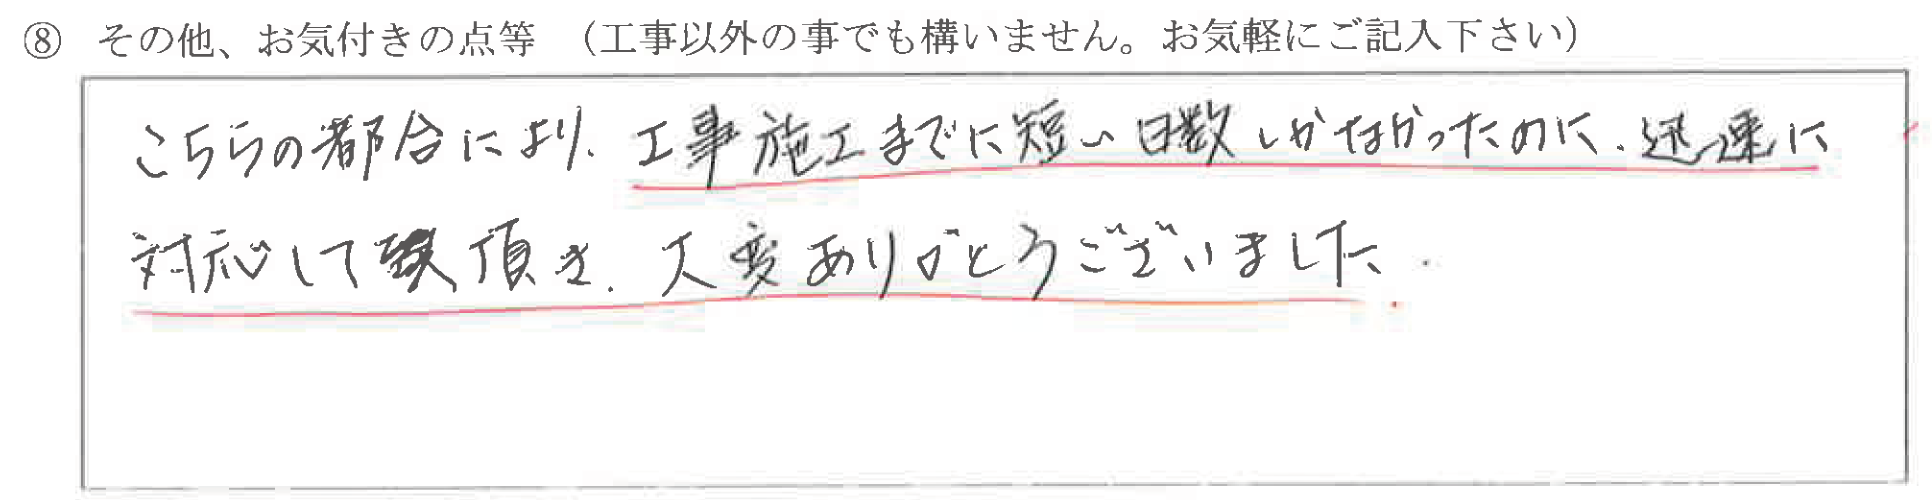 ⑧ その他、お気付きの点等 （工事以外の事でも構いません。お気軽にご記入下さい）
こちらの都合により、工事施工までに短い日数しかなかったのに、迅速に
対応して頂き、大変ありがとうございました。